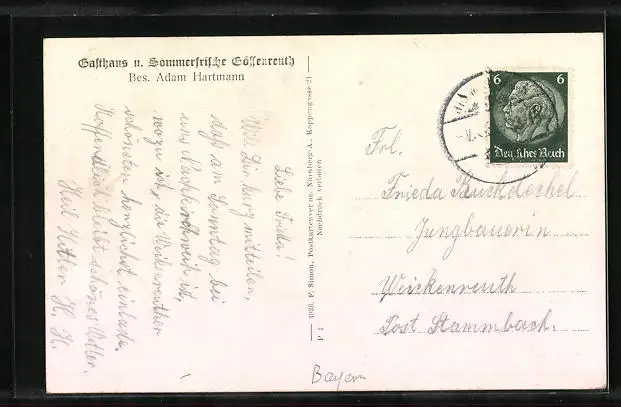 Gasthaus u. Sommerfrische Gössenreuth
Bes. Adam Hartmann
Liebe Frieda!
Will Dir kurz mitteilen,
daß am Sonntag bei
uns Nachkirchweih ist,
wozu ich, die Weickenreuther
schönsten herzlichst einlade.
Hoffendlich bleibt schönes Wetter.
Heil Hitler H. H.
1936. F. Simon, Postkartenverlag, Nürnberg-A., Koppengasse 21
Nachdruck verboten
P 1
6 6
Deutsches Reich
Frl.
Frieda Ruckdeschel
Jungbäuerin
Weickenreuth
Post Stammbach.
Bayern